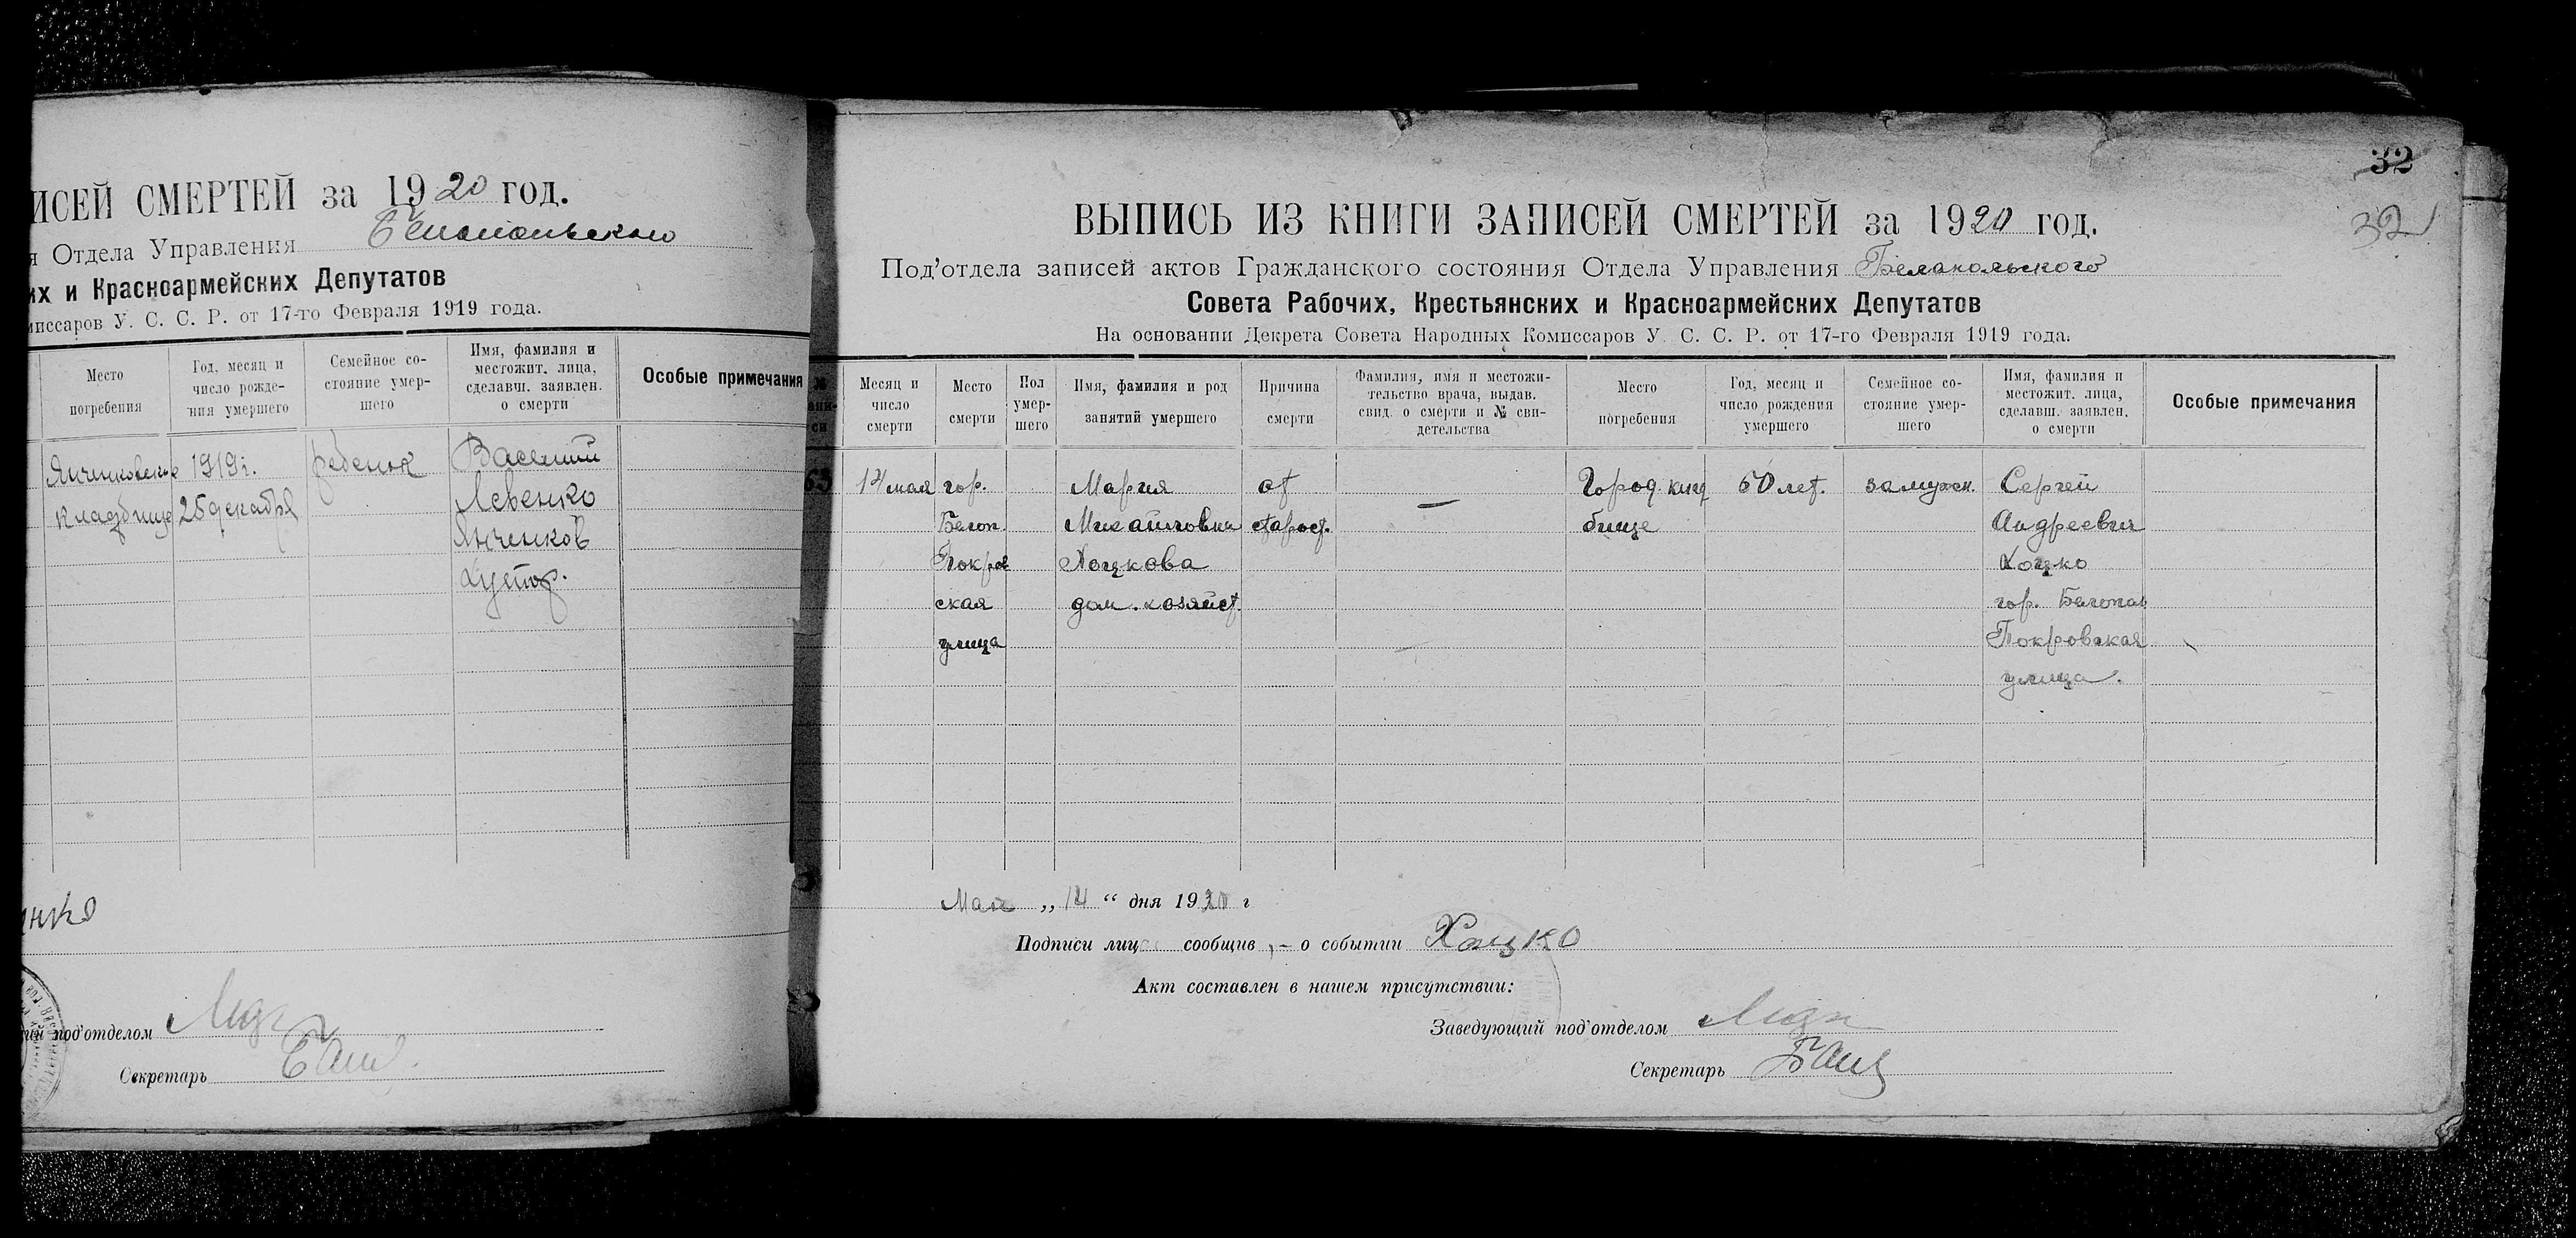 ИСЕЙ СМЕРТЕЙ за 1920 год.
я Отдела Управления Белопольского
их и Красноармейских Депутатов
миссаров У. С. С. Р. от 17-го Февраля 1919 года.
Место погребения
Год, месяц и число рожде-ния умершего
Семейное со-стояние умер-шего
Имя, фамилия и местожит. лица, сделавш. заявлен. о смерти
Особые примечания
Янченковское 1919г. ребенок Василий
кладбище 25 декабря Левенко
Янченков
хутор.
нко
ий под'отделом
Секретарь
32
32
ВЫПИСЬ ИЗ КНИГИ ЗАПИСЕЙ СМЕРТЕЙ за 1920 год.
Под'отдела записей актов Гражданского состояния Отдела Управления Белопольского
Совета Рабочих, Крестьянских и Красноармейских Депутатов
На основании Декрета Совета Народных Комиссаров У. С. С. Р. от 17-го Февраля 1919 года.
Месяц и число смерти
Место смерти
Пол умер-шего
Имя, фамилия и род занятий умершего
Причина смерти
Фамилия, имя и местожи-тельство врача, выдав. свид. о смерти и № сви-детельства
Место погребения
Год, месяц и число рождения умершего
Семейное со-стояние умер-шего
Имя, фамилия и местожит. лица, сделавш. заявлен. о смерти
Особые примечания
63 14 мая гор. Мария от — Город. клад 60 лет. замужн. Сергей
Белоп. Михайловна старост. бище Андреевич
Покров Хоцкова Хоцко
ская дом. хозяйст. гор. Белополь
улица Покровская
улица.
Мая „14“ дня 1920 г
Подписи лиц сообщив — о событии Хоцко
Акт составлен в нашем присутствии:
Заведующий под'отделом
Секретарь